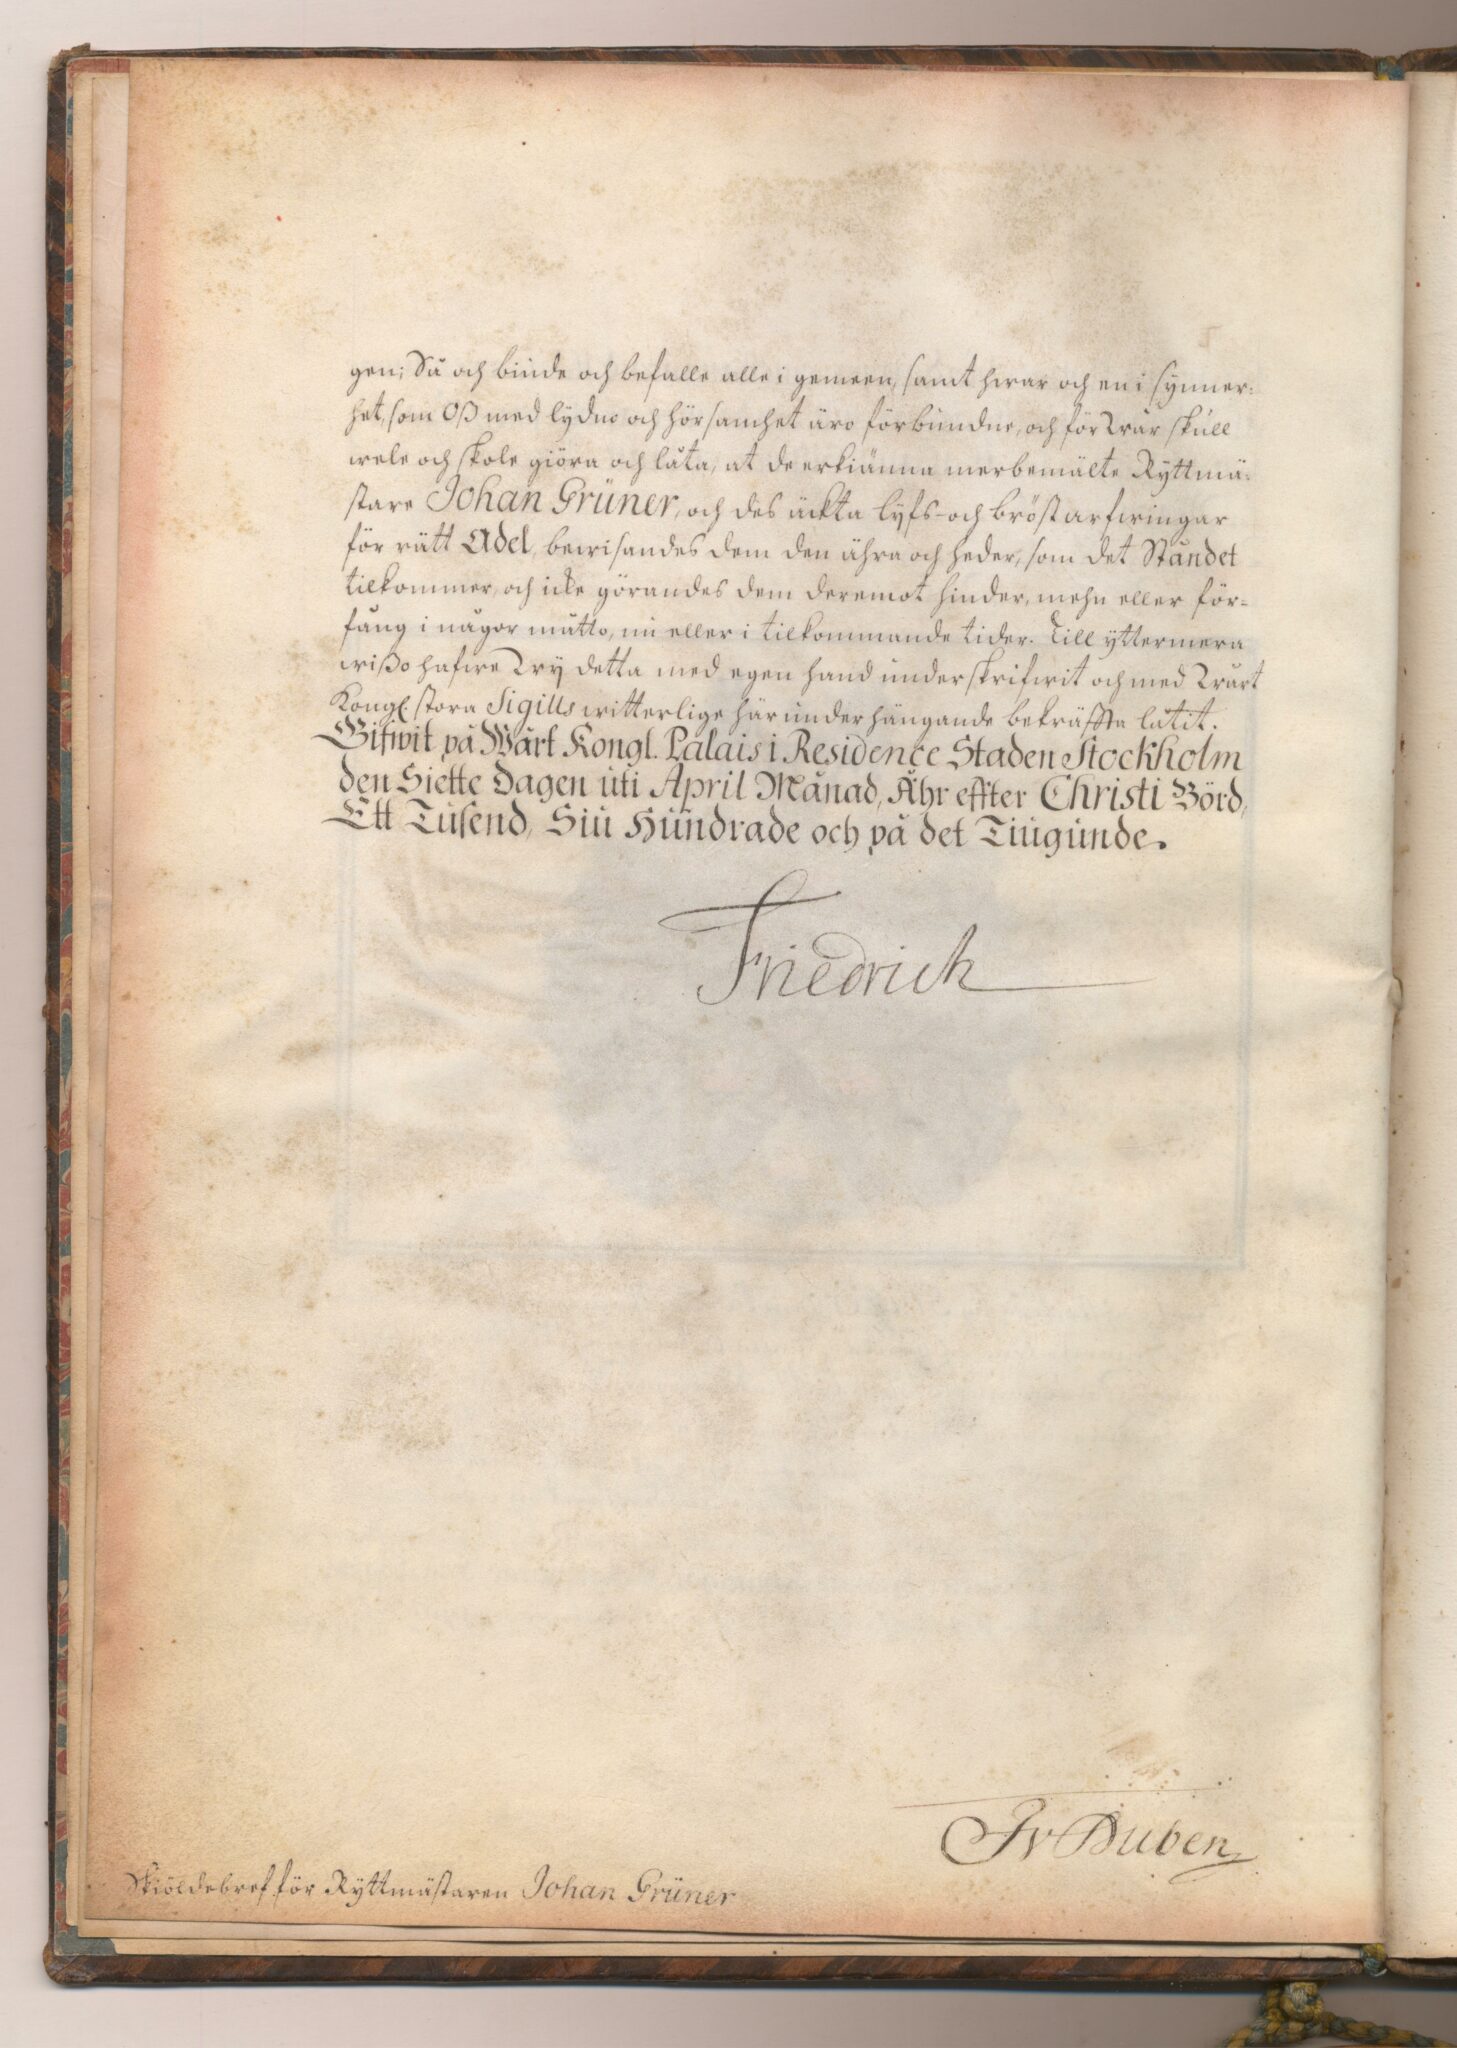 gen; Så och biude och befalle alle i gemeen, samt hwar och en i synner-
het, som Oß med lydno och hörsamhet äro förbundne, och för Wår skull
wele och skole giöra och låta, at de erkiänna merbemälte Ryttmä-
stare Johan Grüner, och des äckta lyfs- och bröstarfwingar
för rätt Adel, bewisandes dem den ähra och heder, som det Ståndet
tilkommer, och icke görandes dem deremot hinder, mehn eller för-
fång i någor måtto, nu eller i tilkommande tider. Till yttermera
wißo hafwe Wy detta med egen hand underskrifwit och med Wårt
Kongl. stora Sigills witterlige här under hängande bekräffta låtit.
Gifwit på Wårt Kongl. Palais i Residence Staden Stockholm
den Siette Dagen uti April Månad, Åhr effter Christi Börd,
Ett Tusend, Siu Hundrade och på det Tiugunde.
Friedrich
Jv Duben
Skiöldebref för Ryttmästaren Johan Grüner